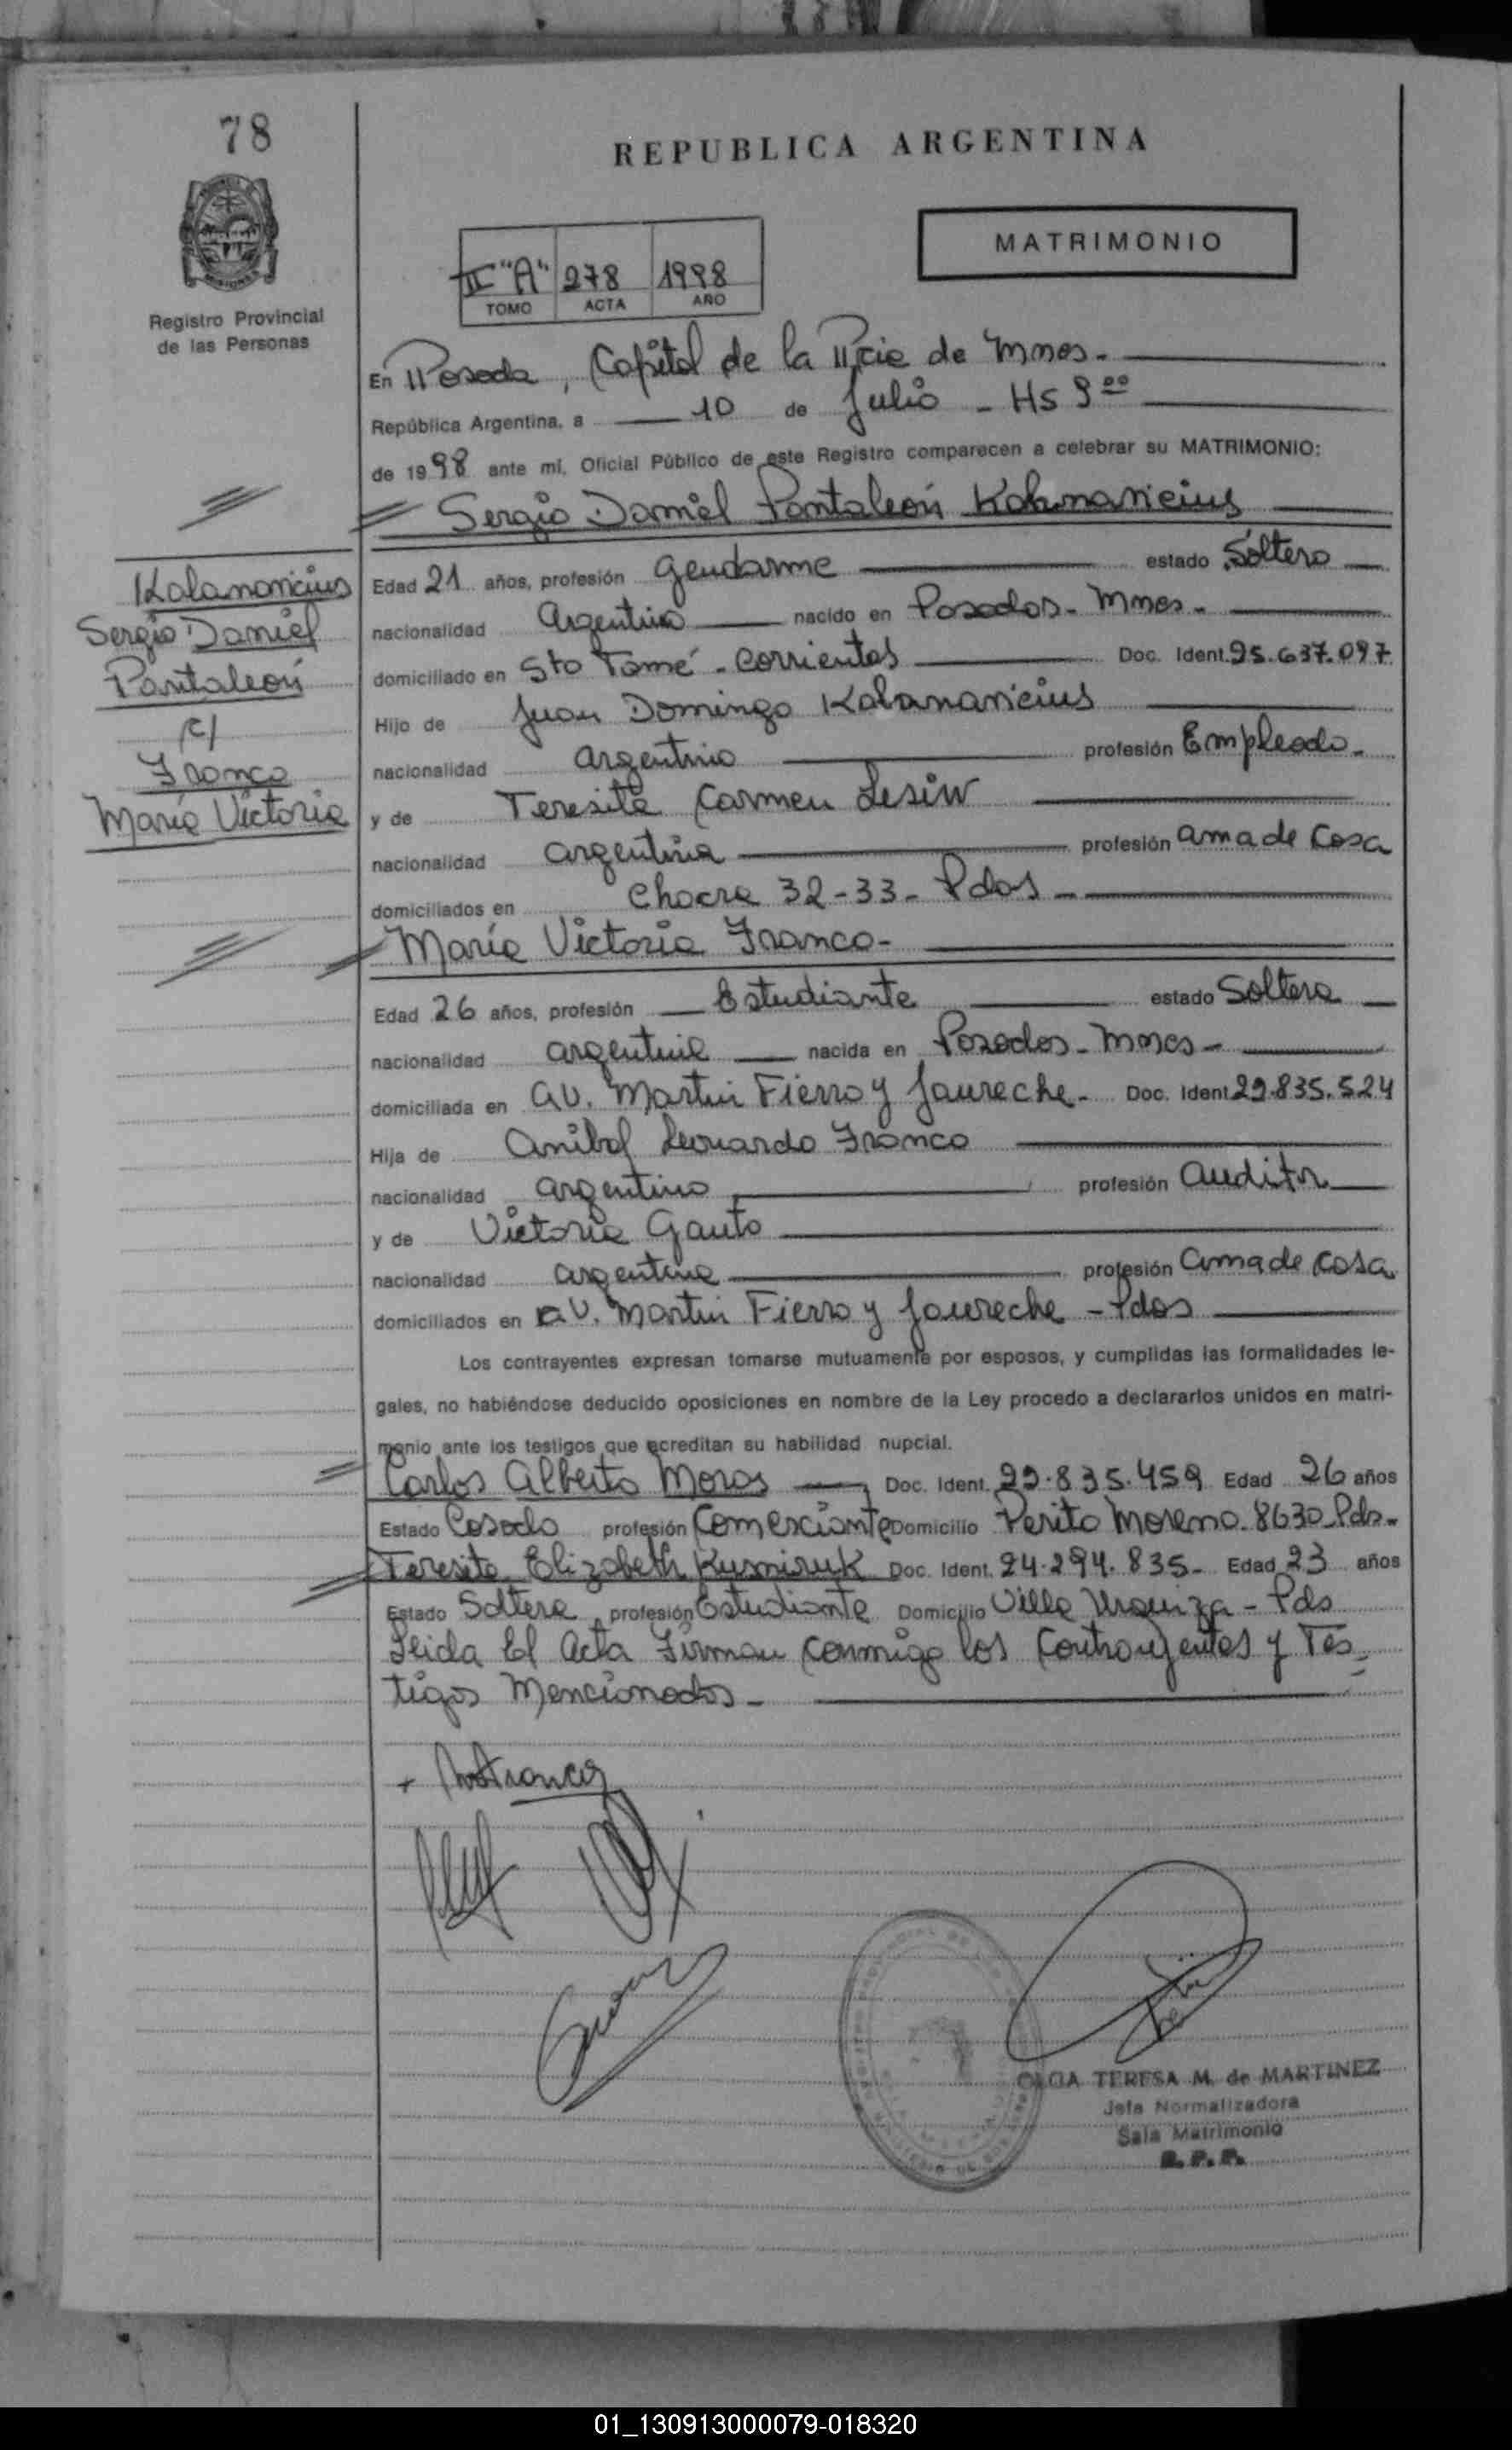 78
REPUBLICA ARGENTINA
MATRIMONIO
II "A" 278 1998
TOMO ACTA AÑO
Registro Provincial
de las Personas
En Posada, Capital de la Pcia de Mnes.
República Argentina, a 10 de Julio - Hs 9 00
de 1998 ante mí, Oficial Público de este Registro comparecen a celebrar su MATRIMONIO:
Sergio Daniel Pantaleón Kalanavicius
Kalanavicius
Sergio Daniel
Pantaleón
c/
Franco
María Victoria
Edad 21 años, profesión Gendarme estado Soltero
nacionalidad Argentina nacido en Posadas - Mnes -
domiciliado en Sto Tomé - Corrientes Doc. Ident. 25.637.097
Hijo de Juan Domingo Kalanavicius
nacionalidad argentino profesión Empleado -
y de Teresita Carmen Lesiw
nacionalidad argentina profesión ama de Casa
domiciliados en Chacra 32-33 - Pdas -
María Victoria Franco -
Edad 26 años, profesión Estudiante estado Soltera
nacionalidad argentina nacida en Posadas - Mnes -
domiciliada en av. Martin Fierro y Jaureche - Doc. Ident. 22.835.524
Hija de Anibal Leonardo Franco
nacionalidad argentino profesión auditor
y de Victoria Gauto
nacionalidad argentina profesión ama de casa
domiciliados en av. Martin Fierro y Jaureche - Pdas
Los contrayentes expresan tomarse mutuamente por esposos, y cumplidas las formalidades le-
gales, no habiéndose deducido oposiciones en nombre de la Ley procedo a declararlos unidos en matri-
monio ante los testigos que acreditan su habilidad nupcial.
Carlos Alberto Moras Doc. Ident. 22.835.459 Edad 26 años
Estado Casado profesión Comerciante Domicilio Perito Moreno 8630 Pdas -
Teresita Elizabeth Kusmiruk Doc. Ident. 24.294.835 - Edad 23 años
Estado Soltera profesión Estudiante Domicilio Villa Urquiza - Pdas
Leida El acta Firman conmigo los Contrayentes y Tes
tigos Mencionados -
TERESA M. de MARTINEZ
Jefa Normalizadora
Sala Matrimonio
R. P. P.
01_130913000079-018320